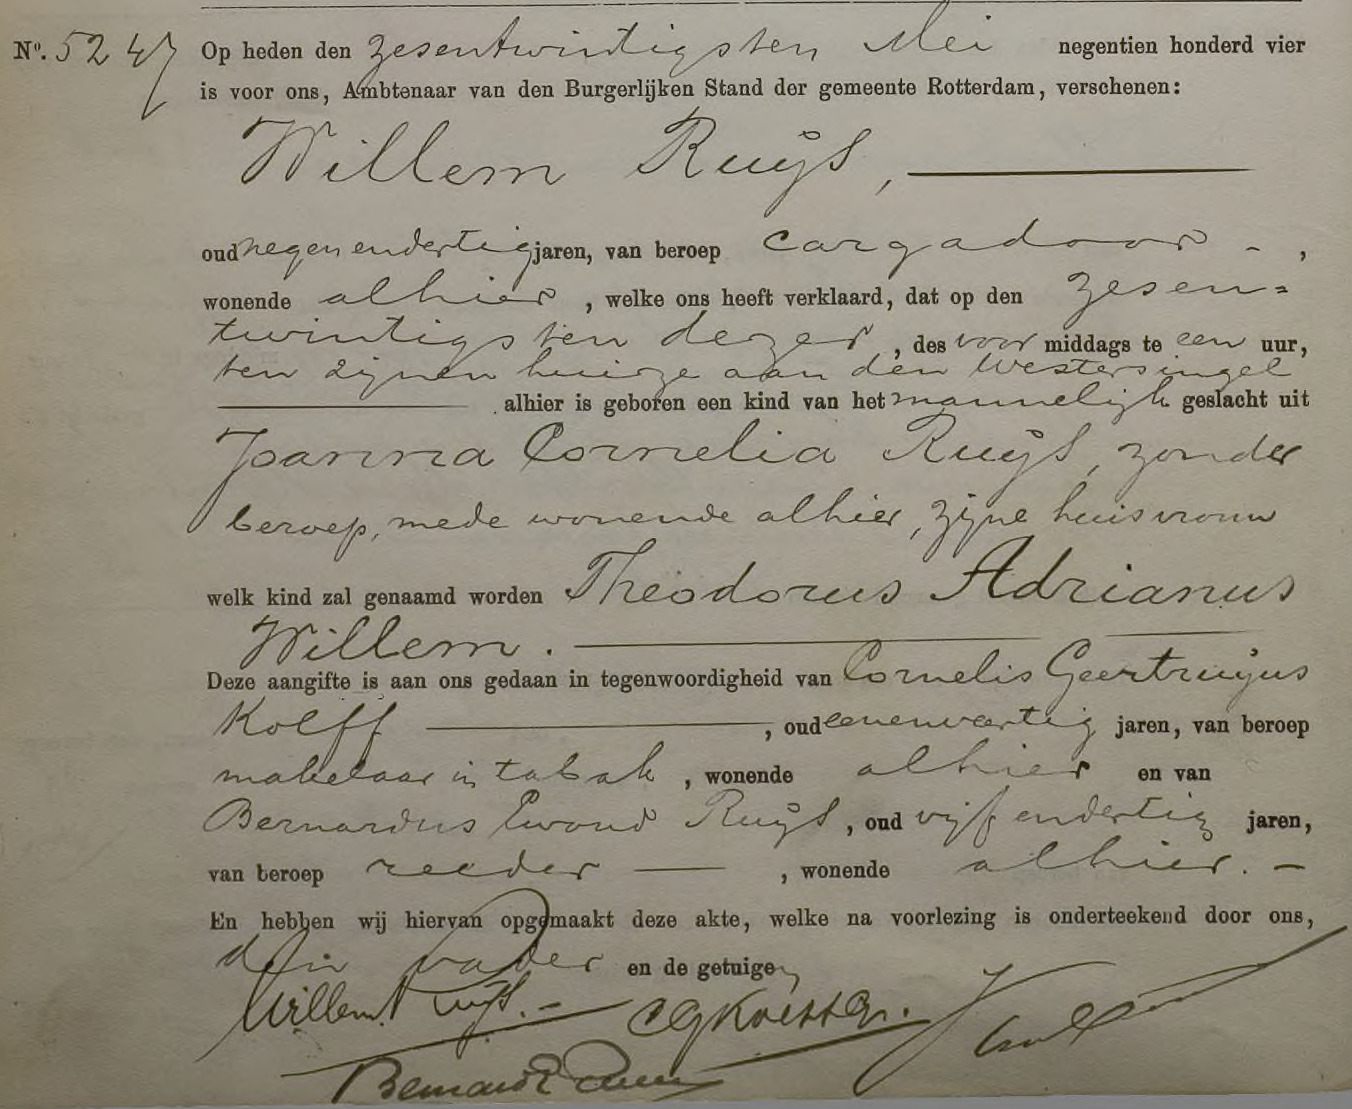 Nº. 5247 Op heden den zesentwintigsten Mei negentien honderd vier
is voor ons, Ambtenaar van den Burgerlijken Stand der gemeente Rotterdam, verschenen:
Willem Ruÿs,
oud negenendertig jaren, van beroep cargadoor - ,
wonende alhier , welke ons heeft verklaard, dat op den zesen=
twintigsten dezer , des voor middags te een uur,
ten zijnen huize aan den Westersingel
alhier is geboren een kind van het mannelijk geslacht uit
Joanna Cornelia Ruÿs, zonder
beroep, mede wonende alhier, zijne huisvrouw
welk kind zal genaamd worden Theodorus Adrianus
Willem.
Deze aangifte is aan ons gedaan in tegenwoordigheid van Cornelis Geertruÿus
Kolff , oud eenenveertig jaren, van beroep
makelaar in tabak , wonende alhier en van
Bernardus Ewoud Ruÿs , oud vijf endertig jaren,
van beroep reeder , wonende alhier. -
En hebben wij hiervan opgemaakt deze akte, welke na voorlezing is onderteekend door ons,
den vader en de getuigen
Willem Ruÿs. - CGKolff Gz.
Bernard E Ruys